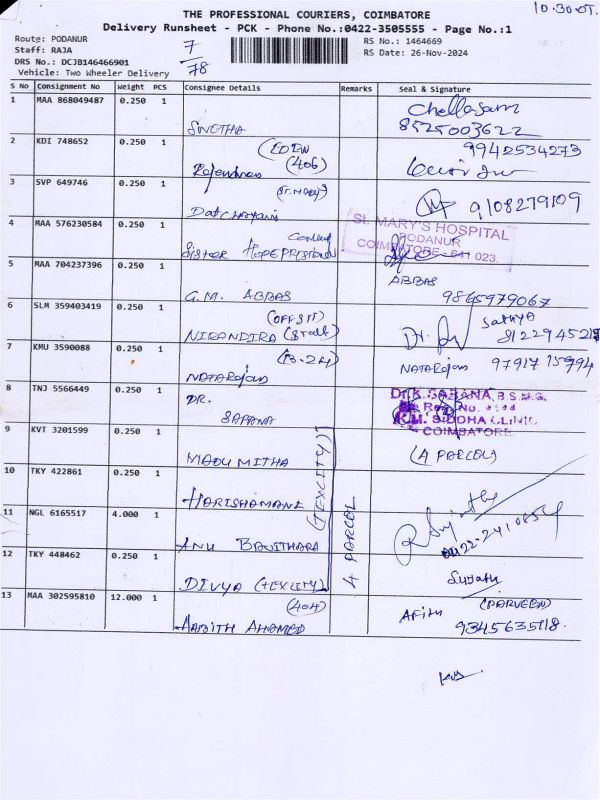 10.30.
THE PROFESSIONAL COURIERS, COIMBATORE
Delivery Runsheet - PCK - Phone No.:0422-3505555 - Page No.:1
Route: PODANUR
7
RS No.: 1464669
Staff: RAJA
78
RS Date: 26-Nov-2024
DRS No.: DCJB146466901
Vehicle: Two Wheeler Delivery
S No Consignment No Weight PCS Consignee Details Remarks Seal & Signature
1 MAA 868049487 0.250 1
SNETHA
8525003622
2 KDI 748652 0.250 1
(EDEN
(406)
9942534273
Rajendran
3 SVP 649746 0.250 1
9108279109
4 MAA 576230584 0.250 1
ST. MARY'S HOSPITAL
PODANUR
COIMBATORE - 641 023.
Convent
Sister
5 MAA 704237396 0.250 1
ABBAS
G.M. ABBAS
9865979067
6 SLM 359403419 0.250 1
(OFFSIT)
NIRANDIRA (Stall)
Sathya
7 KMU 3590088 0.250 1
(B-24)
NATARajan
NATARajan 97917 15794
8 TNJ 5566449 0.250 1
DR.
SAPANA
Dr.K.SABANA, B.S.M.S.
Reg No.
K.M. SIDDHA CLINIC
COIMBATORE
9 KVT 3201599 0.250 1
MADUMITHA
(4 PARCEL)
10 TKY 422861 0.250 1
HARISHAMANI
(TEXCITY)
4 PARCEL
11 NGL 6165517 4.000 1
ANU BAVITHARA
12 TKY 448462 0.250 1
DIVYA (TEXCITY)
13 MAA 302595810 12.000 1
(404)
AADITH AHAMED
(PARVEEN)
9345635118